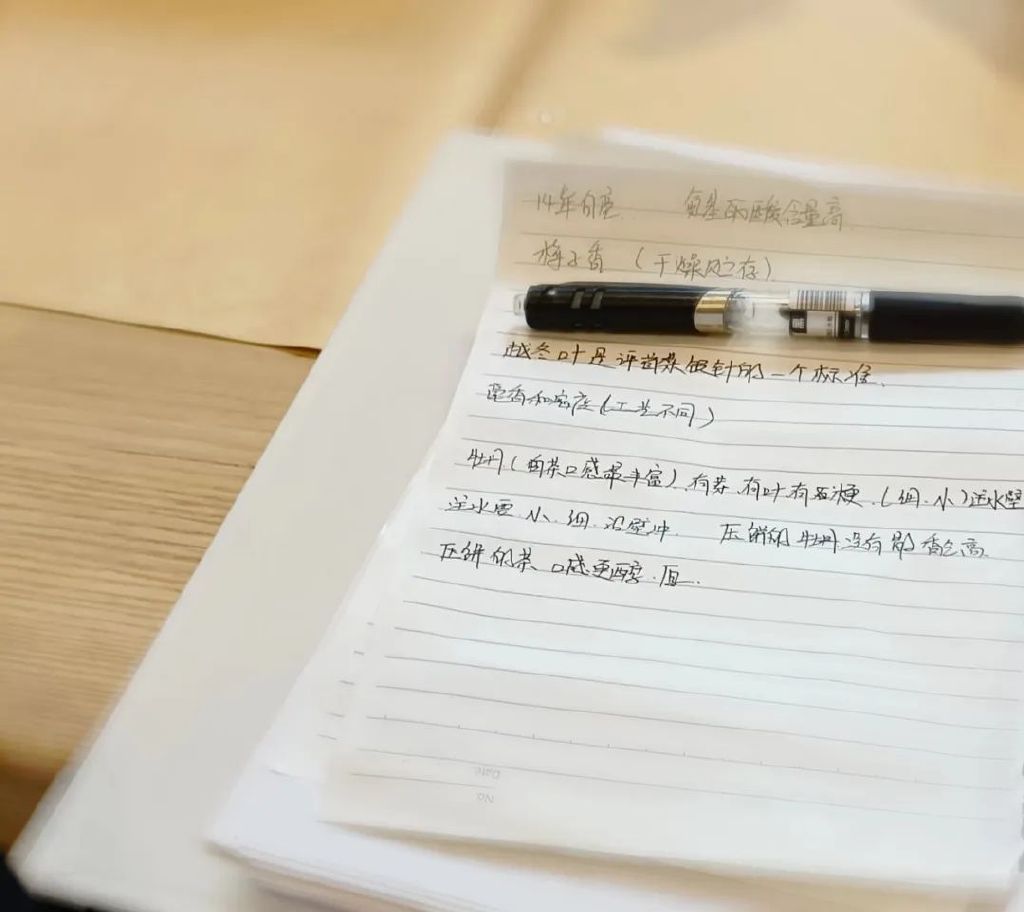 14年白毫 氨基酸含量高
梅子香 (干燥贮存)
越冬叶是评白茶银针的一个标准.
毫香和密度(工艺不同)
牡丹(白茶口感最丰富).有芽.有叶有梗.(细.小)注水壁
注水要.小.细.沿壁冲. 压饼的牡丹没有散香气高
压饼的茶 口感更醇.厚.
No.
Date